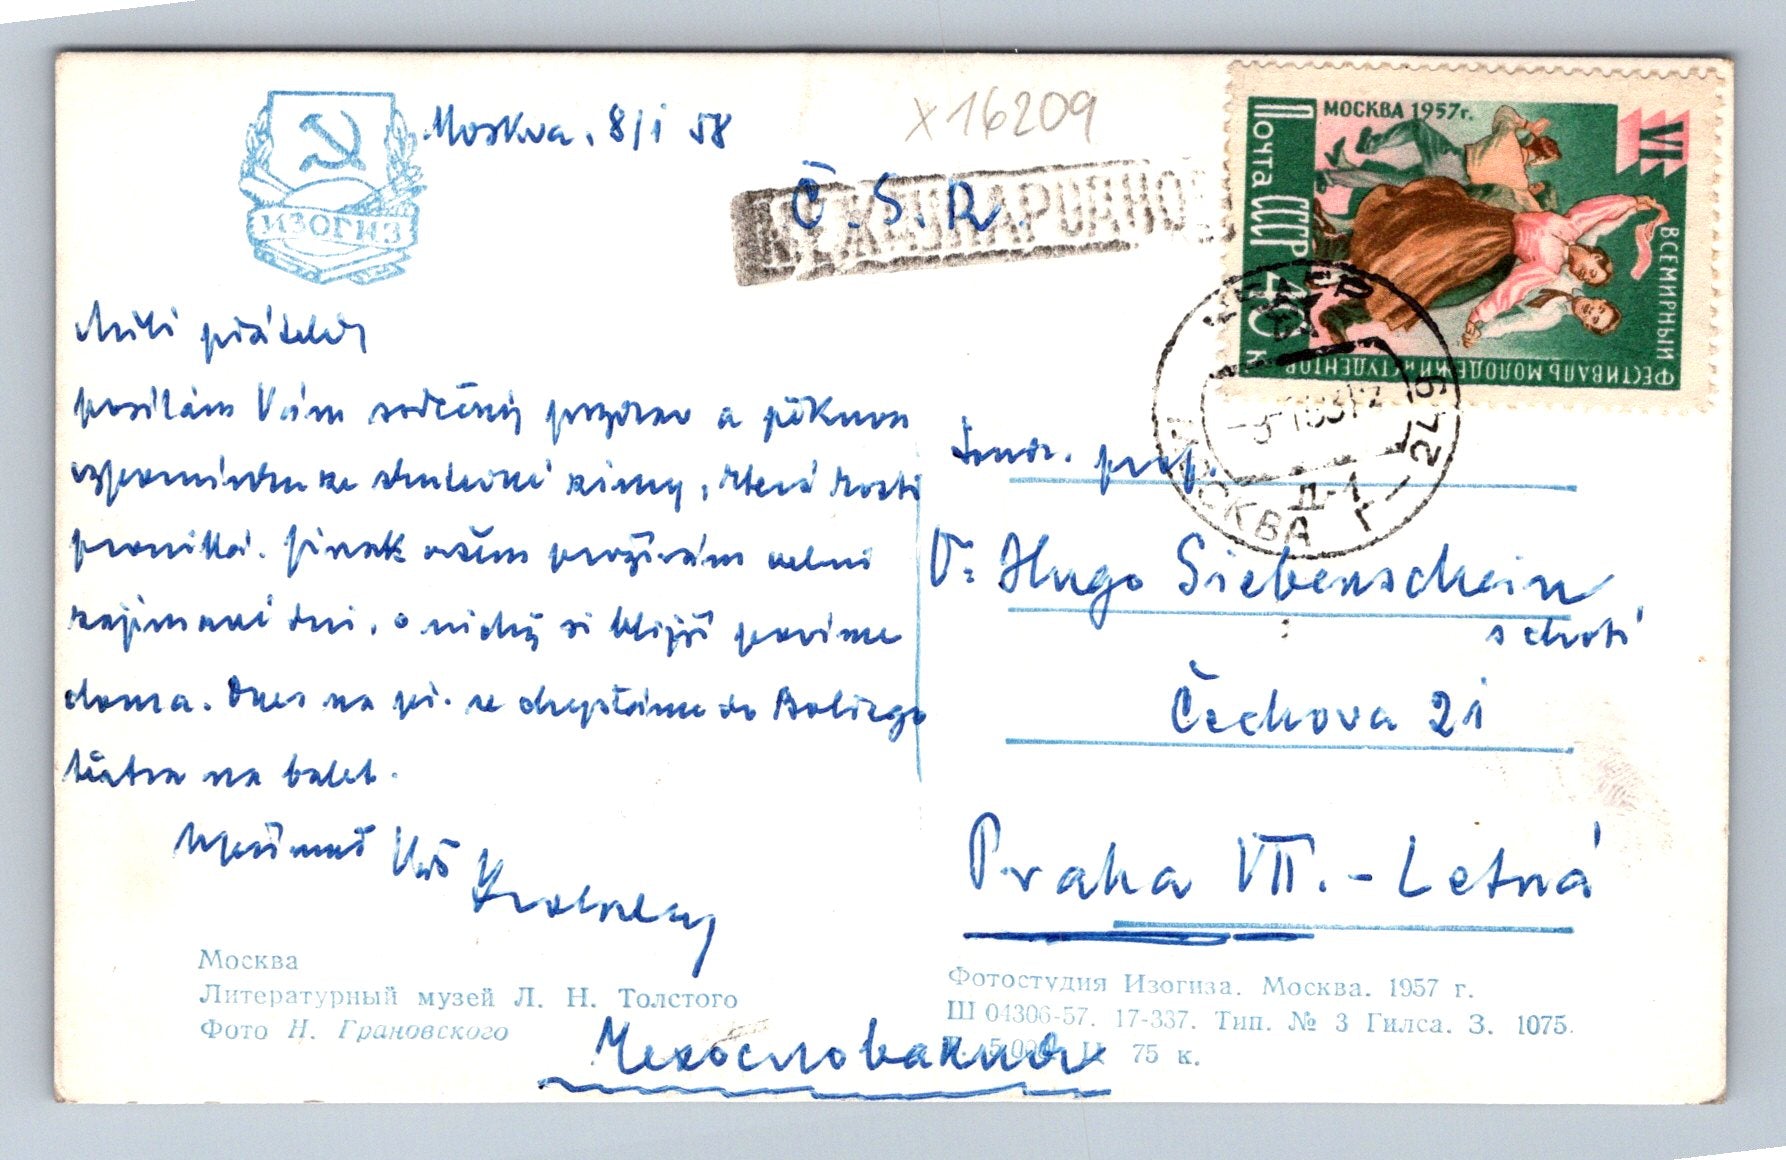 ИЗОГИЗ
Moskva. 8/I 58
X 16209
Č. S. R.
МЕЖДУНАРОДНОЕ
МОСКВА 1957г.
VI
ВСЕМИРНЫЙ
ФЕСТИВАЛЬ МОЛОДЕЖИ И СТУДЕНТОВ
ПОЧТА СССР 40 к
МОСКВА
Milí přátelé,
posílám Vám srdečný pozdrav a pěknou
vzpomínku ze skutečné zimy, která kosti
proniká. Jinak ovšem prožívám velmi
zajímavé dni, o nichž si blíže povíme
doma. Dnes na př. se chystáme do Bolšego
těatra na balet.
Upřímně Váš
Soudr. prof.
Dr Hugo Siebenschein
s chotí
Čechova 21
Praha VII. - Letná
Москва
Литературный музей Л. Н. Толстого
Фото Н. Грановского
Фотостудия Изогиза. Москва. 1957 г.
Ш 04306-57. 17-337. Тип. № 3 Гилса. З. 1075.
75 к.
Чехословакия